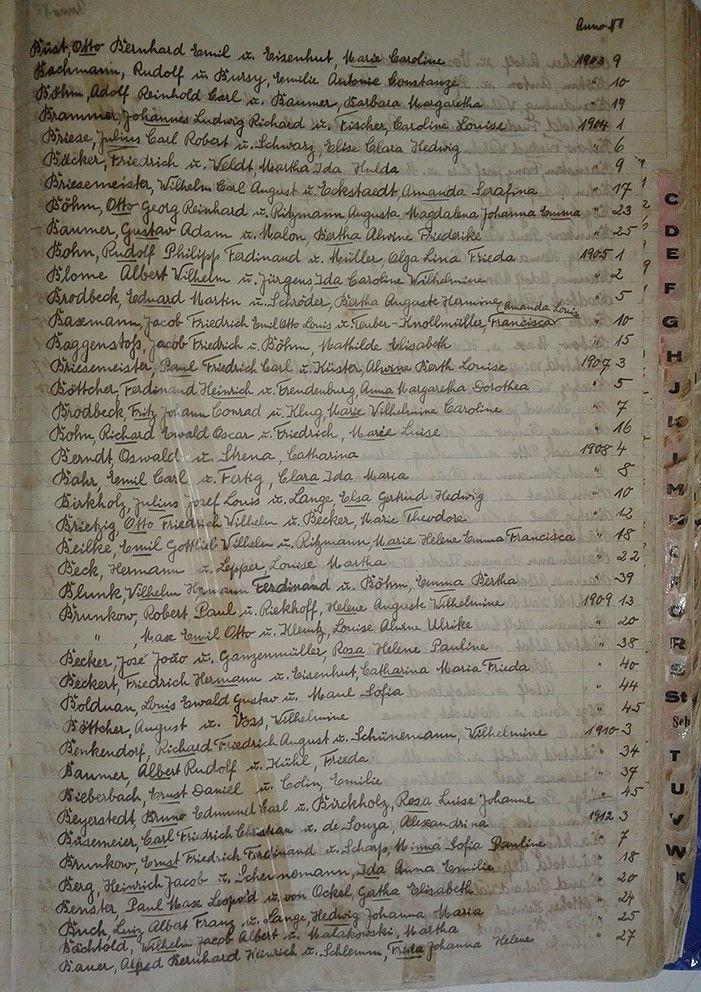 Anno No
Büst, Otto Bernhard Emil u. Eisenhut, Marie Caroline 1903 9
Bachmann, Rudolf u. Bursy, Emilie Antonie Constanze " 10
Böhm, Adolf Reinhold Carl u. Baumer, Barbara Margaretha " 19
Brammer, Johannes Ludwig Richard u. Fischer, Caroline Louise 1904 1
Briese, Julius Carl Robert u. Schwarz, Elise Clara Hedwig " 6
Bäcker, Friedrich u. Weldt, Martha Ida Hulda " 9
Briesemeister, Wilhelm Carl August u. Eckstaedt, Amanda Serafina " 17
Böhm, Otto Georg Reinhard u. Ritzmann Augusta Magdalena Johanna Emma " 23
Baumer, Gustav Adam u. Malon, Bertha Alwine Friederike " 25
Bohn, Rudolf Philipp Ferdinand u. Müller Olga Lina Frieda 1905 1
Blome Albert Wilhelm u. Jürgens Ida Caroline Wilhelmine " 2
Brodbeck, Eduard Martin u. Schröder, Bertha Auguste Hermine " 5
Amanda Louise
Baxmann, Jacob Friedrich Emil Otto Louis u. Teuber-Knollmüller, Francisca " 10
Baggenstoss, Jacob Friedrich u. Böhm, Mathilde Elisabeth " 15
Briesemeister, Paul Friedrich Carl u. Küster, Alwine Berth Louise 1907 3
Böttcher, Ferdinand Heinrich u. Trendenburg, Anna Margaretha Dorothea " 5
Brodbeck, Fritz Johann Conrad u. Klug, Marie Wilhelmine Caroline " 7
Bohn, Richard Ewald Oscar u. Friedrich, Marie Luise " 16
Berndt Oswald u. Strena, Catharina 1908 4
Bahr, Emil Carl u. Fertig, Clara Ida Maria " 8
Birkholz, Julius Josef Louis u. Lange, Elsa Gertrud Hedwig " 10
Brietzig Otto Friedrich Wilhelm u. Becker, Marie Theodore " 12
Beilke, Emil Gottlieb Wilhelm u. Ritzmann, Marie Helene Emma Francisca " 18
Beck, Hermann u. Lepper, Louise Martha " 22
Blunk, Wilhelm Hermann Ferdinand u. Böhm, Emma Bertha " 39
Brunkow, Robert Paul u. Riekhoff, Helene Auguste Wilhelmine 1909 13
" , Max Emil Otto u. Klemtz, Louise Alwine Ulrike " 20
Becker, José João u. Ganzenmüller, Rosa Helene Pauline " 38
Beckert, Friedrich Hermann u. Eisenhut, Catharina Maria Frieda " 40
Bolduan, Louis Ewald Gustav u. Maul Sofia " 44
Böttcher, August u. Voss, Wilhelmine " 45
Benkendorf, Richard Friedrich August u. Schünemann, Wilhelmine 1910 3
Baumer Albert Rudolf u. Kühl, Frieda " 34
Bieberbach, Ernst Daniel u. Colin, Emilie " 37
Beyerstedt, Bruno Edmund Carl u. Birckholz, Rosa Luise Johanne " 45
Büsemeier, Carl Friedrich Christian u. de Souza, Alexandrina 1912 3
Brunkow, Ernst Friedrich Ferdinand u. Scharp, Minna Sofia Pauline " 7
Berg, Heinrich Jacob u. Schernemann, Ida Anna Emilie " 18
Benster, Paul Max Leopold u. von Ockel Gertha Elizabeth " 20
Birch, Luiz Albert Franz u. Lange, Hedwig Johanna Maria " 24
Bächtold, Wilhelm Jacob Albert u. Malakowski, Martha " 25
Bauer, Alfred Bernhard Heinrich u. Schlemm, Frieda Johanna Helene " 27
C
D
E
F
G
H
J
K
L
M
N
O
R
S
St
Sch
T
U
V
W